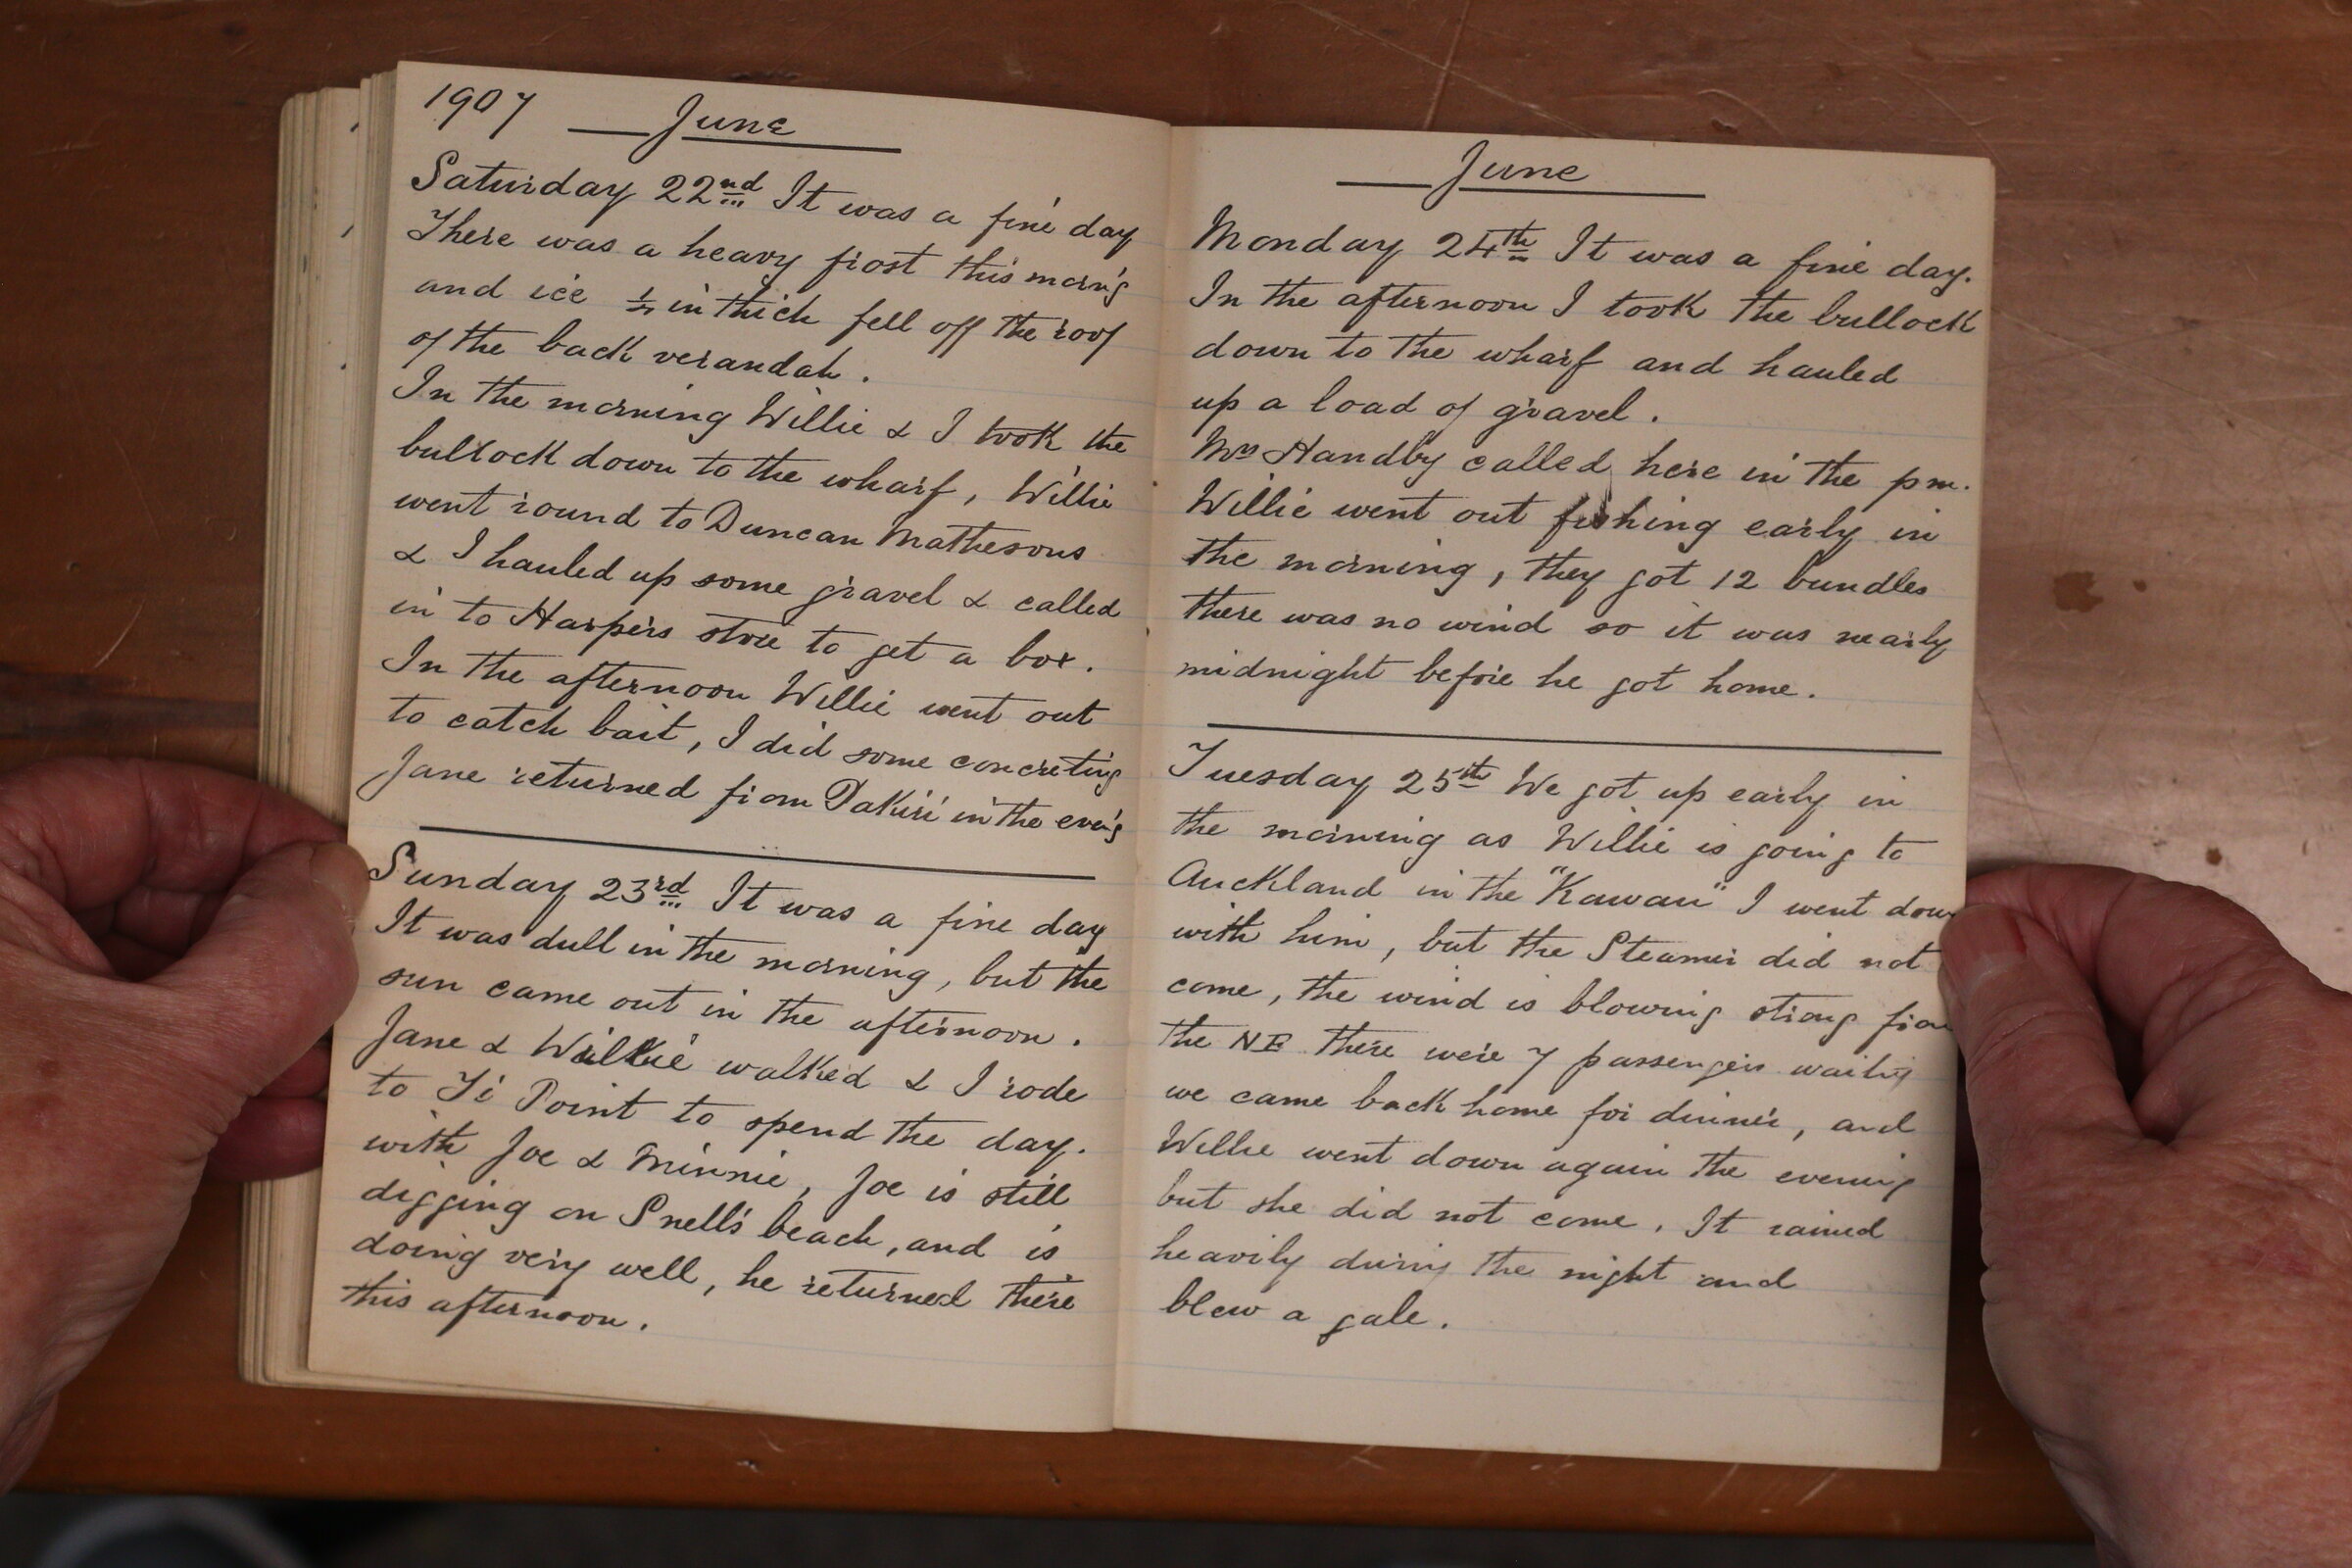 1907 June
Saturday 22nd It was a fine day
There was a heavy frost this morn'g
and ice in thick fell off the roof
of the back verandah.
In the morning Willie & I took the
bullock down to the wharf, Willie
went round to Duncan Mathesons
& I hauled up some gravel & called
in to Harpers store to get a box.
In the afternoon Willie went out
to catch bait, I did some concreting
Jane returned from Pakiri in the even'g
Sunday 23rd It was a fine day
It was dull in the morning, but the
sun came out in the afternoon.
Jane & Willie walked & I rode
to Ti Point to spend the day.
with Joe & Minnie, Joe is still
digging on Snells beach, and is
doing very well, he returned there
this afternoon.
June
Monday 24th It was a fine day.
In the afternoon I took the bullock
down to the wharf and hauled
up a load of gravel.
Mrs Handby called here in the pm.
Willie went out fishing early in
the morning, they got 12 bundles
there was no wind so it was nearly
midnight before he got home.
Tuesday 25th We got up early in
the morning as Willie is going to
Auckland in the "Kawau" I went down
with him, but the Steamer did not
come, the wind is blowing strong from
the NE there were 7 passengers waiting
we came back home for dinner, and
Willie went down again the evening
but she did not come. It rained
heavily during the night and
blew a gale.